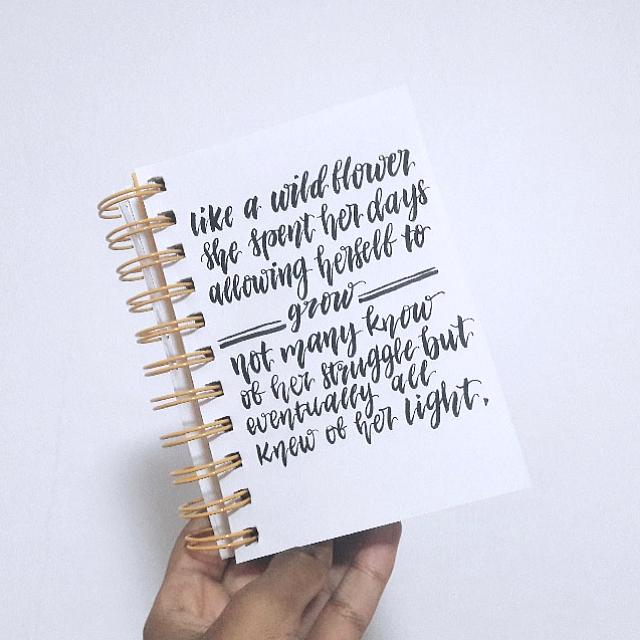 like a wildflower
she spent her days
allowing herself to
grow
not many know
of her struggle but
eventually all
knew of her light.